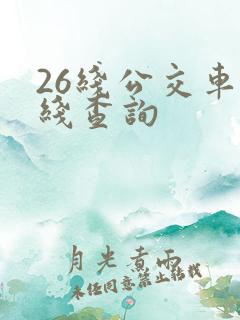 26綫公交車
綫查詢
月光煮雨
未经同意禁止转载